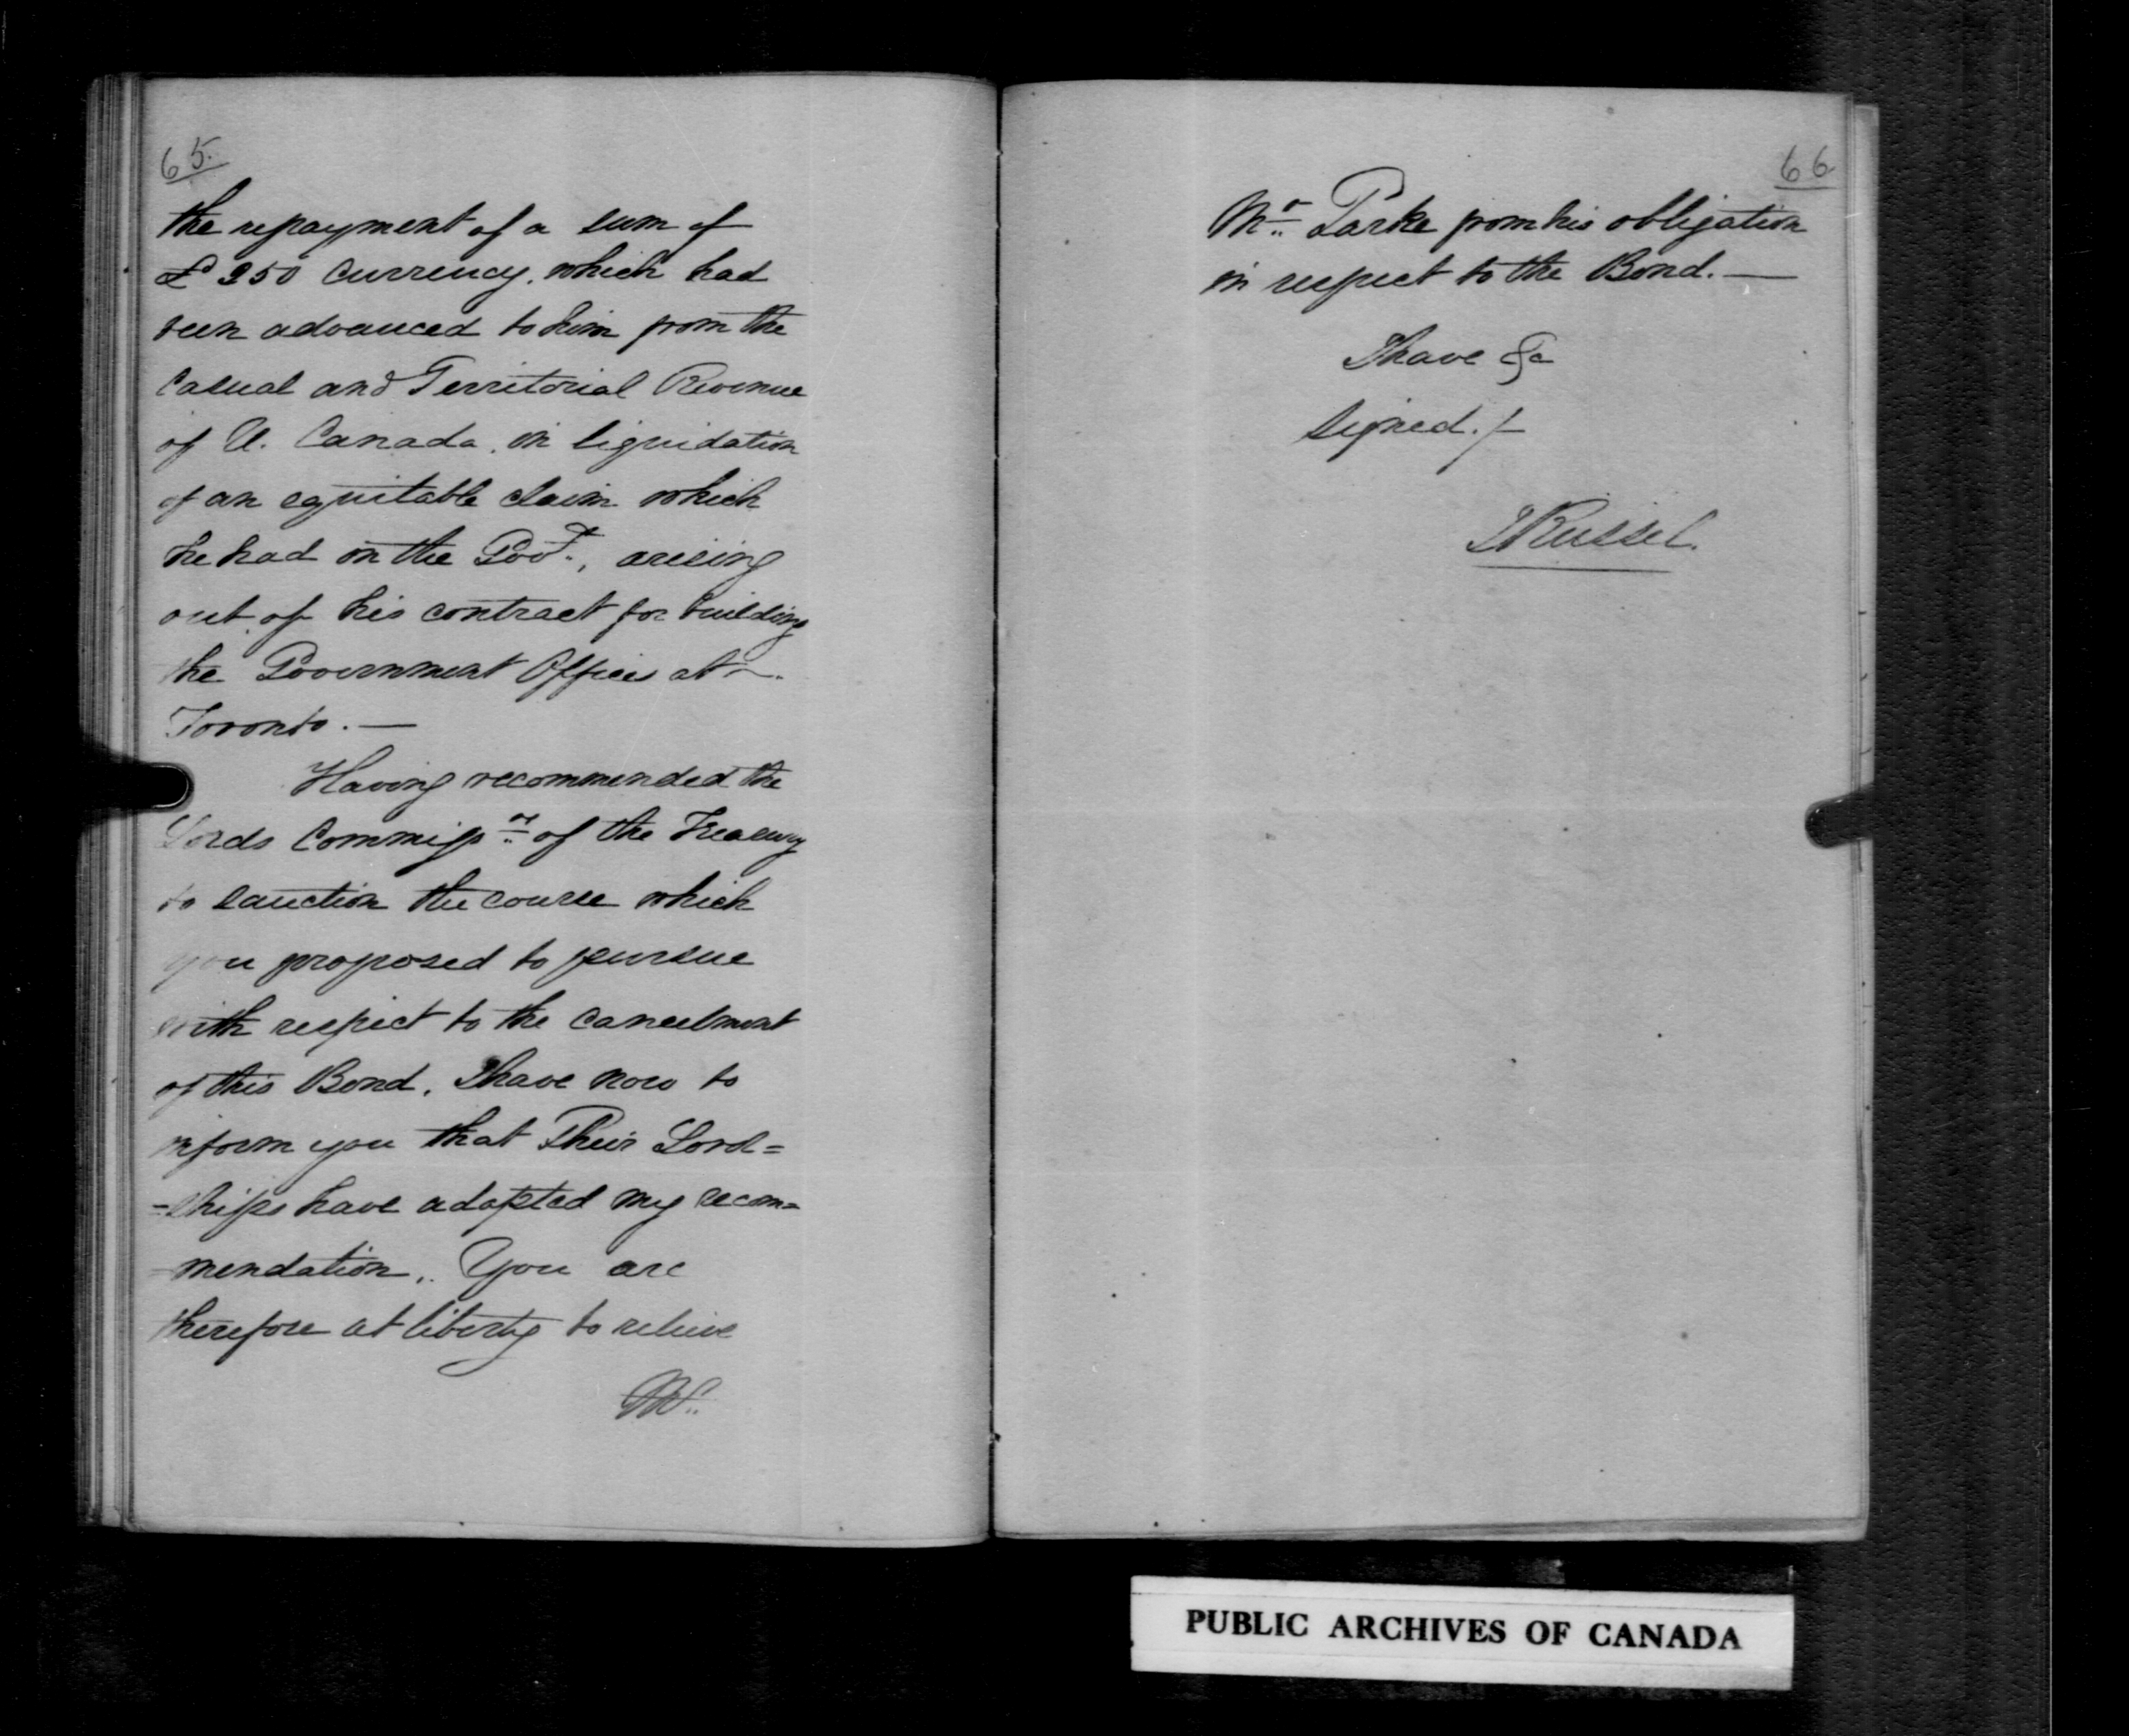 65.
the repayment of a sum of
£ 250 Currency, which had
been advanced to him from the
Casual and Territorial Revenue
of U. Canada, in liquidation
of an equitable claim which
he had on the Govt., arising
out of his contract for building
the Government Offices at
Toronto. —
Having recommended the
Lords Commissrs of the Treasury
to sanction the course which
you proposed to pursue
with respect to the Cancelment
of this Bond, I have now to
inform you that Their Lord=
=ships have adopted my recom=
mendation. You are
therefore at liberty to relieve
Mr.
66
Mr. Parke from his obligation
in respect to the Bond. —
I have &c
signed. /-
J Russel.
PUBLIC ARCHIVES OF CANADA